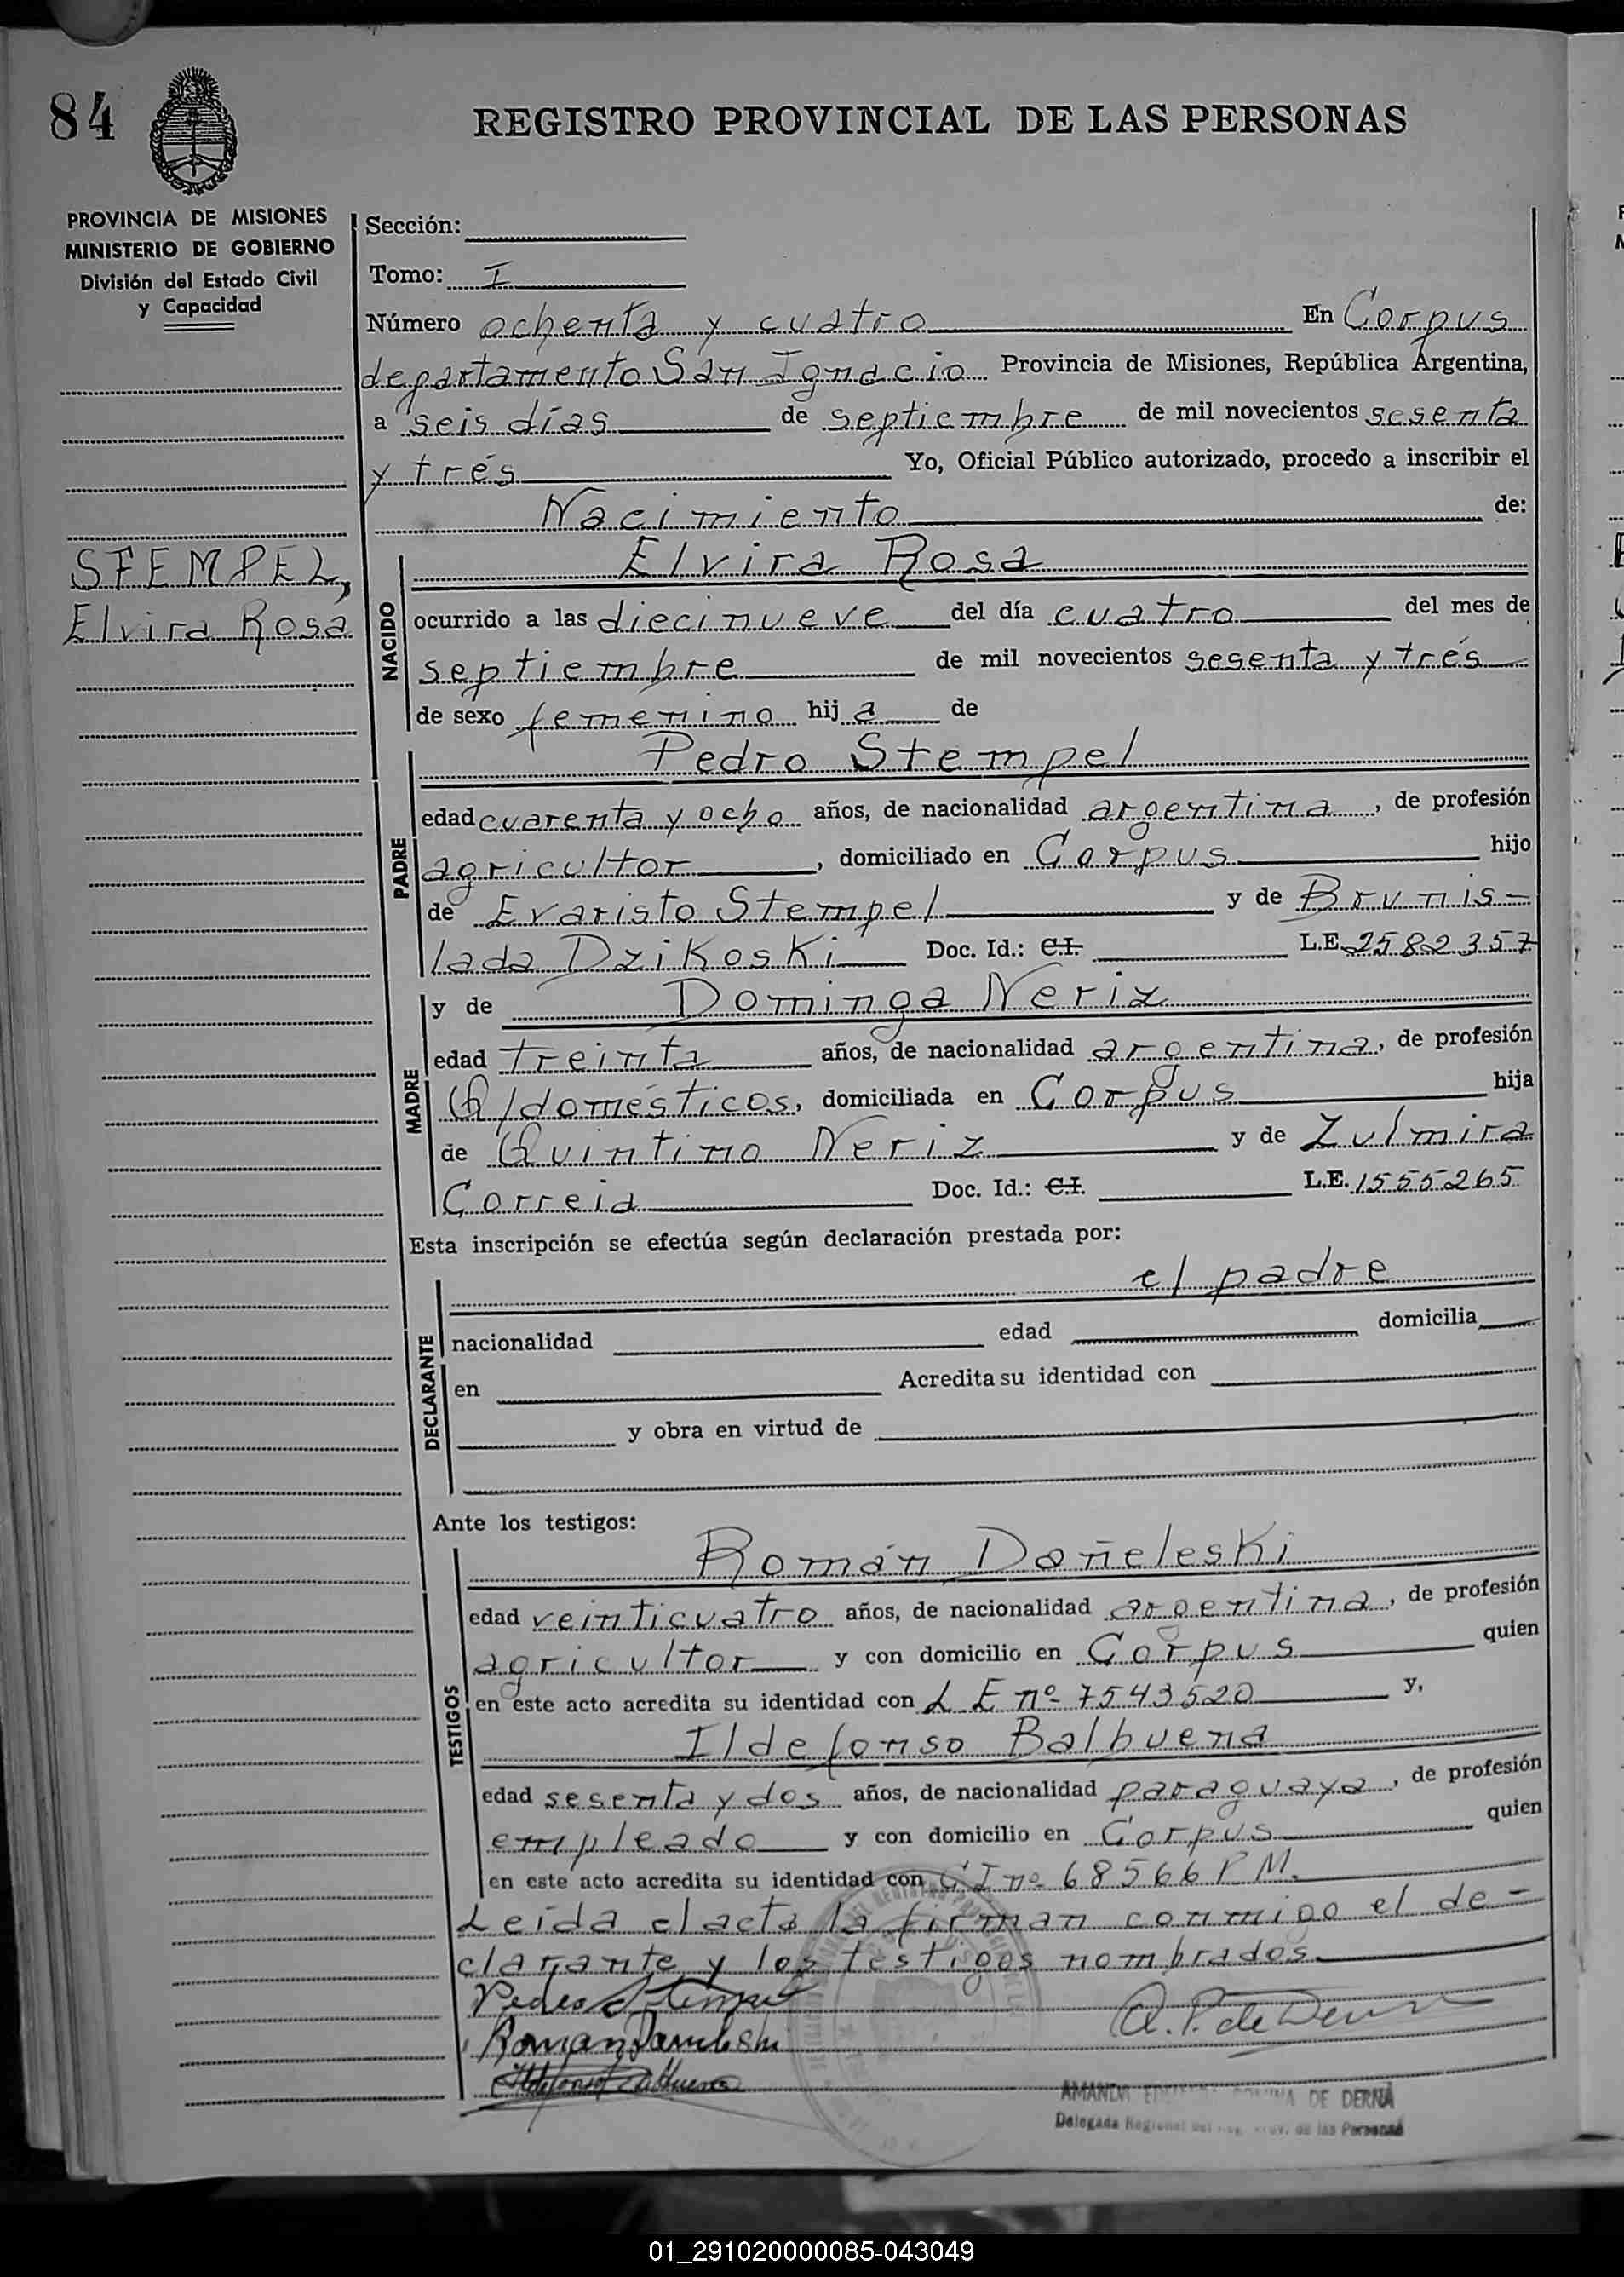 84
REGISTRO PROVINCIAL DE LAS PERSONAS
PROVINCIA DE MISIONES
MINISTERIO DE GOBIERNO
División del Estado Civil
y Capacidad
Sección:
Tomo: I
Número ochenta y cuatro En Corpus
departamento San Ignacio Provincia de Misiones, República Argentina,
a seis días de septiembre de mil novecientos sesenta
y trés Yo, Oficial Público autorizado, procedo a inscribir el
Nacimiento de:
STEMPEL,
Elvira Rosa
NACIDO
Elvira Rosa
ocurrido a las diecinueve del día cuatro del mes de
septiembre de mil novecientos sesenta y trés
de sexo femenino hija de
PADRE
Pedro Stempel
edad cuarenta y ocho años, de nacionalidad argentina, de profesión
agricultor, domiciliado en Corpus hijo
de Evaristo Stempel y de Brunis-
lada Dzikoski Doc. Id.: C.I. L.E. 2582357
MADRE
y de Dominga Neriz
edad treinta años, de nacionalidad argentina, de profesión
Q/domésticos, domiciliada en Corpus hija
de Quintino Neriz y de Zulmira
Correia Doc. Id.: C.I. L.E. 1555265
Esta inscripción se efectúa según declaración prestada por:
DECLARANTE
el padre
nacionalidad edad domicilia
en Acredita su identidad con
y obra en virtud de
Ante los testigos:
TESTIGOS
Román Dañeleski
edad veinticuatro años, de nacionalidad argentina, de profesión
agricultor y con domicilio en Corpus quien
en este acto acredita su identidad con L E nº 7543520 y,
Ildefonso Balbuena
edad sesenta y dos años, de nacionalidad paraguaya, de profesión
empleado y con domicilio en Corpus quien
en este acto acredita su identidad con C I nº 68566 P M.
Leída el acta la firman conmigo el de-
clarante y los testigos nombrados
Pedro Stempel
Roman
Ildefonso Balbuena
A. P. de Derna
AMANDA DE DERNA
Delegada Regional del Reg. Prov. de las Personas
01_291020000085-043049